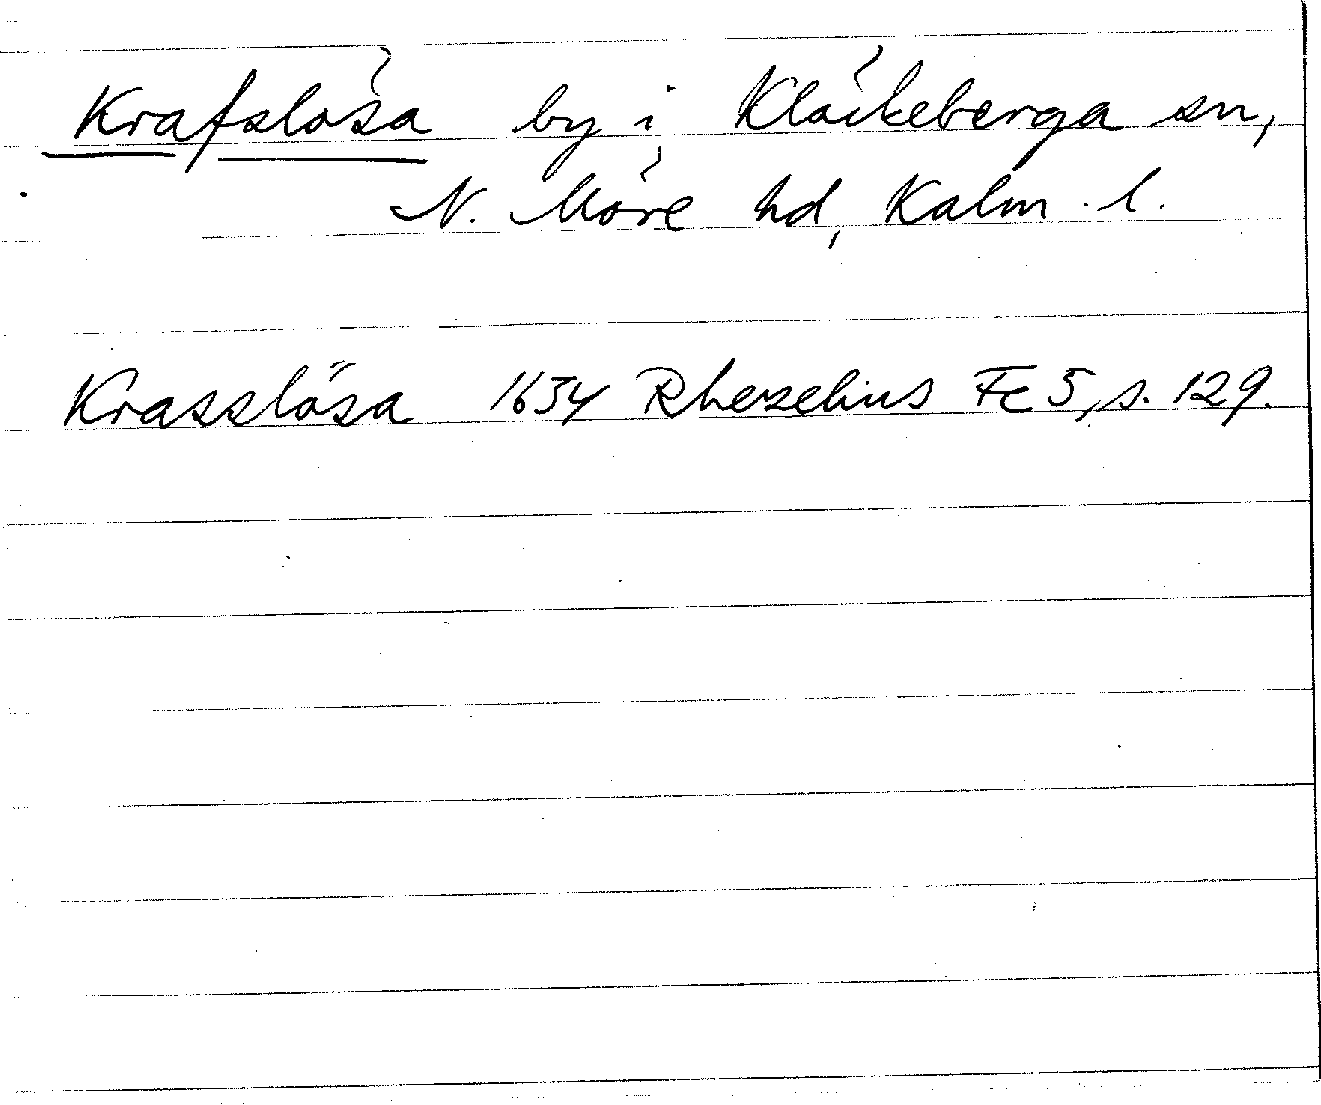 Krafslösa by i Kläckeberga sn,
N. Möre hd, Kalm. l.
Krasslösa 1634 Rhezelius Fc 5, s. 129.